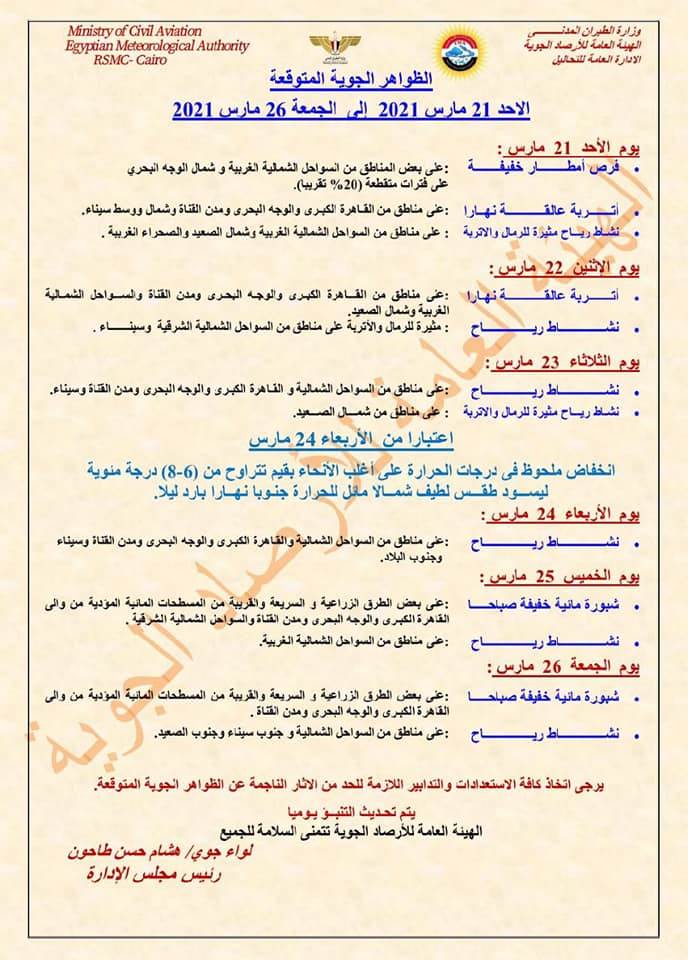 Ministry of Civil Aviation
Egyptian Meteorological Authority
RSMC- Cairo
وزارة الطيران المدنــــــــي
الهيئة العامة للأرصاد الجوية
الادارة العامة للتحاليل
الظواهر الجوية المتوقعة
الاحد 21 مارس 2021 إلى الجمعة 26 مارس 2021
يوم الأحد 21 مارس :
• فرص أمطــار خفيفــــة :على بعض المناطق من السواحل الشمالية الغربية و شمال الوجه البحري
على فترات متقطعة (20% تقريبا).
• أتـــربة عالقـــــة نهارا :على مناطق من القاهرة الكبرى والوجه البحرى ومدن القناة وشمال ووسط سيناء.
• نشاط رياح مثيرة للرمال والاتربة :على مناطق من السواحل الشمالية الغربية وشمال الصعيد والصحراء الغربية .
يوم الاثنين 22 مارس :
• أتـــربة عالقـــــة نهارا :على مناطق من القاهرة الكبرى والوجه البحرى ومدن القناة والسواحل الشمالية
الغربية وشمال الصعيد.
• نشـــــاط ريـــــاح : مثيرة للرمال والأتربة على مناطق من السواحل الشمالية الشرقية وسينــــاء .
يوم الثلاثاء 23 مارس :
• نشـــــاط ريـــــاح :على مناطق من السواحل الشمالية و القاهرة الكبرى والوجه البحرى ومدن القناة وسيناء.
• نشاط رياح مثيرة للرمال والاتربة : على مناطق من شمــال الصـعيد.
اعتبارا من الأربعاء 24 مارس
انخفاض ملحوظ فى درجات الحرارة على أغلب الأنحاء بقيم تتراوح من (6-8) درجة مئوية
ليسـود طقـس لطيف شمـالا مائل للحرارة جنوبا نهارا بارد ليلا.
يوم الأربعاء 24 مارس :
• نشـــــاط ريـــــاح :على مناطق من السواحل الشمالية والقاهرة الكبرى والوجه البحرى ومدن القناة وسيناء
وجنوب البلاد.
يوم الخميس 25 مارس :
• شبورة مائية خفيفة صباحـــا :على بعض الطرق الزراعية و السريعة والقريبة من المسطحات المائية المؤدية من والى
القاهرة الكبرى والوجه البحرى ومدن القناة والسواحل الشمالية الشرقية .
• نشـــــاط ريـــــاح :على مناطق من السواحل الشمالية الغربية.
يوم الجمعة 26 مارس :
• شبورة مائية خفيفة صباحـــا :على بعض الطرق الزراعية و السريعة والقريبة من المسطحات المائية المؤدية من والى
القاهرة الكبرى والوجه البحرى ومدن القناة .
• نشـــــاط ريـــــاح :على مناطق من السواحل الشمالية و جنوب سيناء وجنوب الصعيد.
يرجى اتخاذ كافة الاستعدادات والتدابير اللازمة للحد من الاثار الناجمة عن الظواهر الجوية المتوقعة.
يتم تحديث التنبـؤ يـوميا
الهيئة العامة للأرصاد الجوية تتمنى السلامة للجميع
لواء جوي/ هشام حسن طاحون
رئيس مجلس الإدارة
الهيئة العامة للأرصاد الجوية